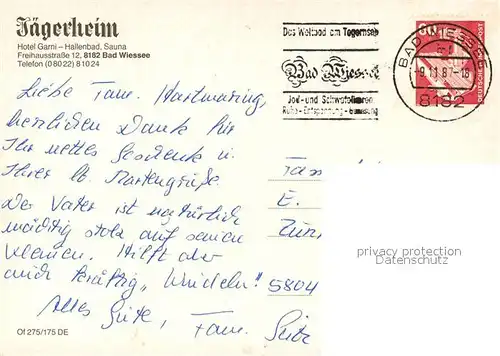 Jägerheim
Hotel Garni – Hallenbad, Sauna
Freihausstraße 12, 8182 Bad Wiessee
Telefon (08022) 81024
Das Weltbad am Tegernsee
Bad Wiessee
Jod- und Schwefelthermen
Ruhe - Entspannung - Genesung
BAD WIESSEE
-9.11.87-18
8182
80
DEUTSCHE BUNDESPOST
Liebe Fam. Hartmaring,
herzlichen Dank für
Ihr nettes Geschenk u.
Ihrer lb. Kartengrüße.
Der Vater ist natürlich
mächtig stolz auf seinen
Kleinen. Hilft aber
auch kräftig "Windeln"
Alles
Gute, Fam. Seitz
Fam
E.
Zur
5804
privacy protection
Datenschutz
Of 275/175 DE